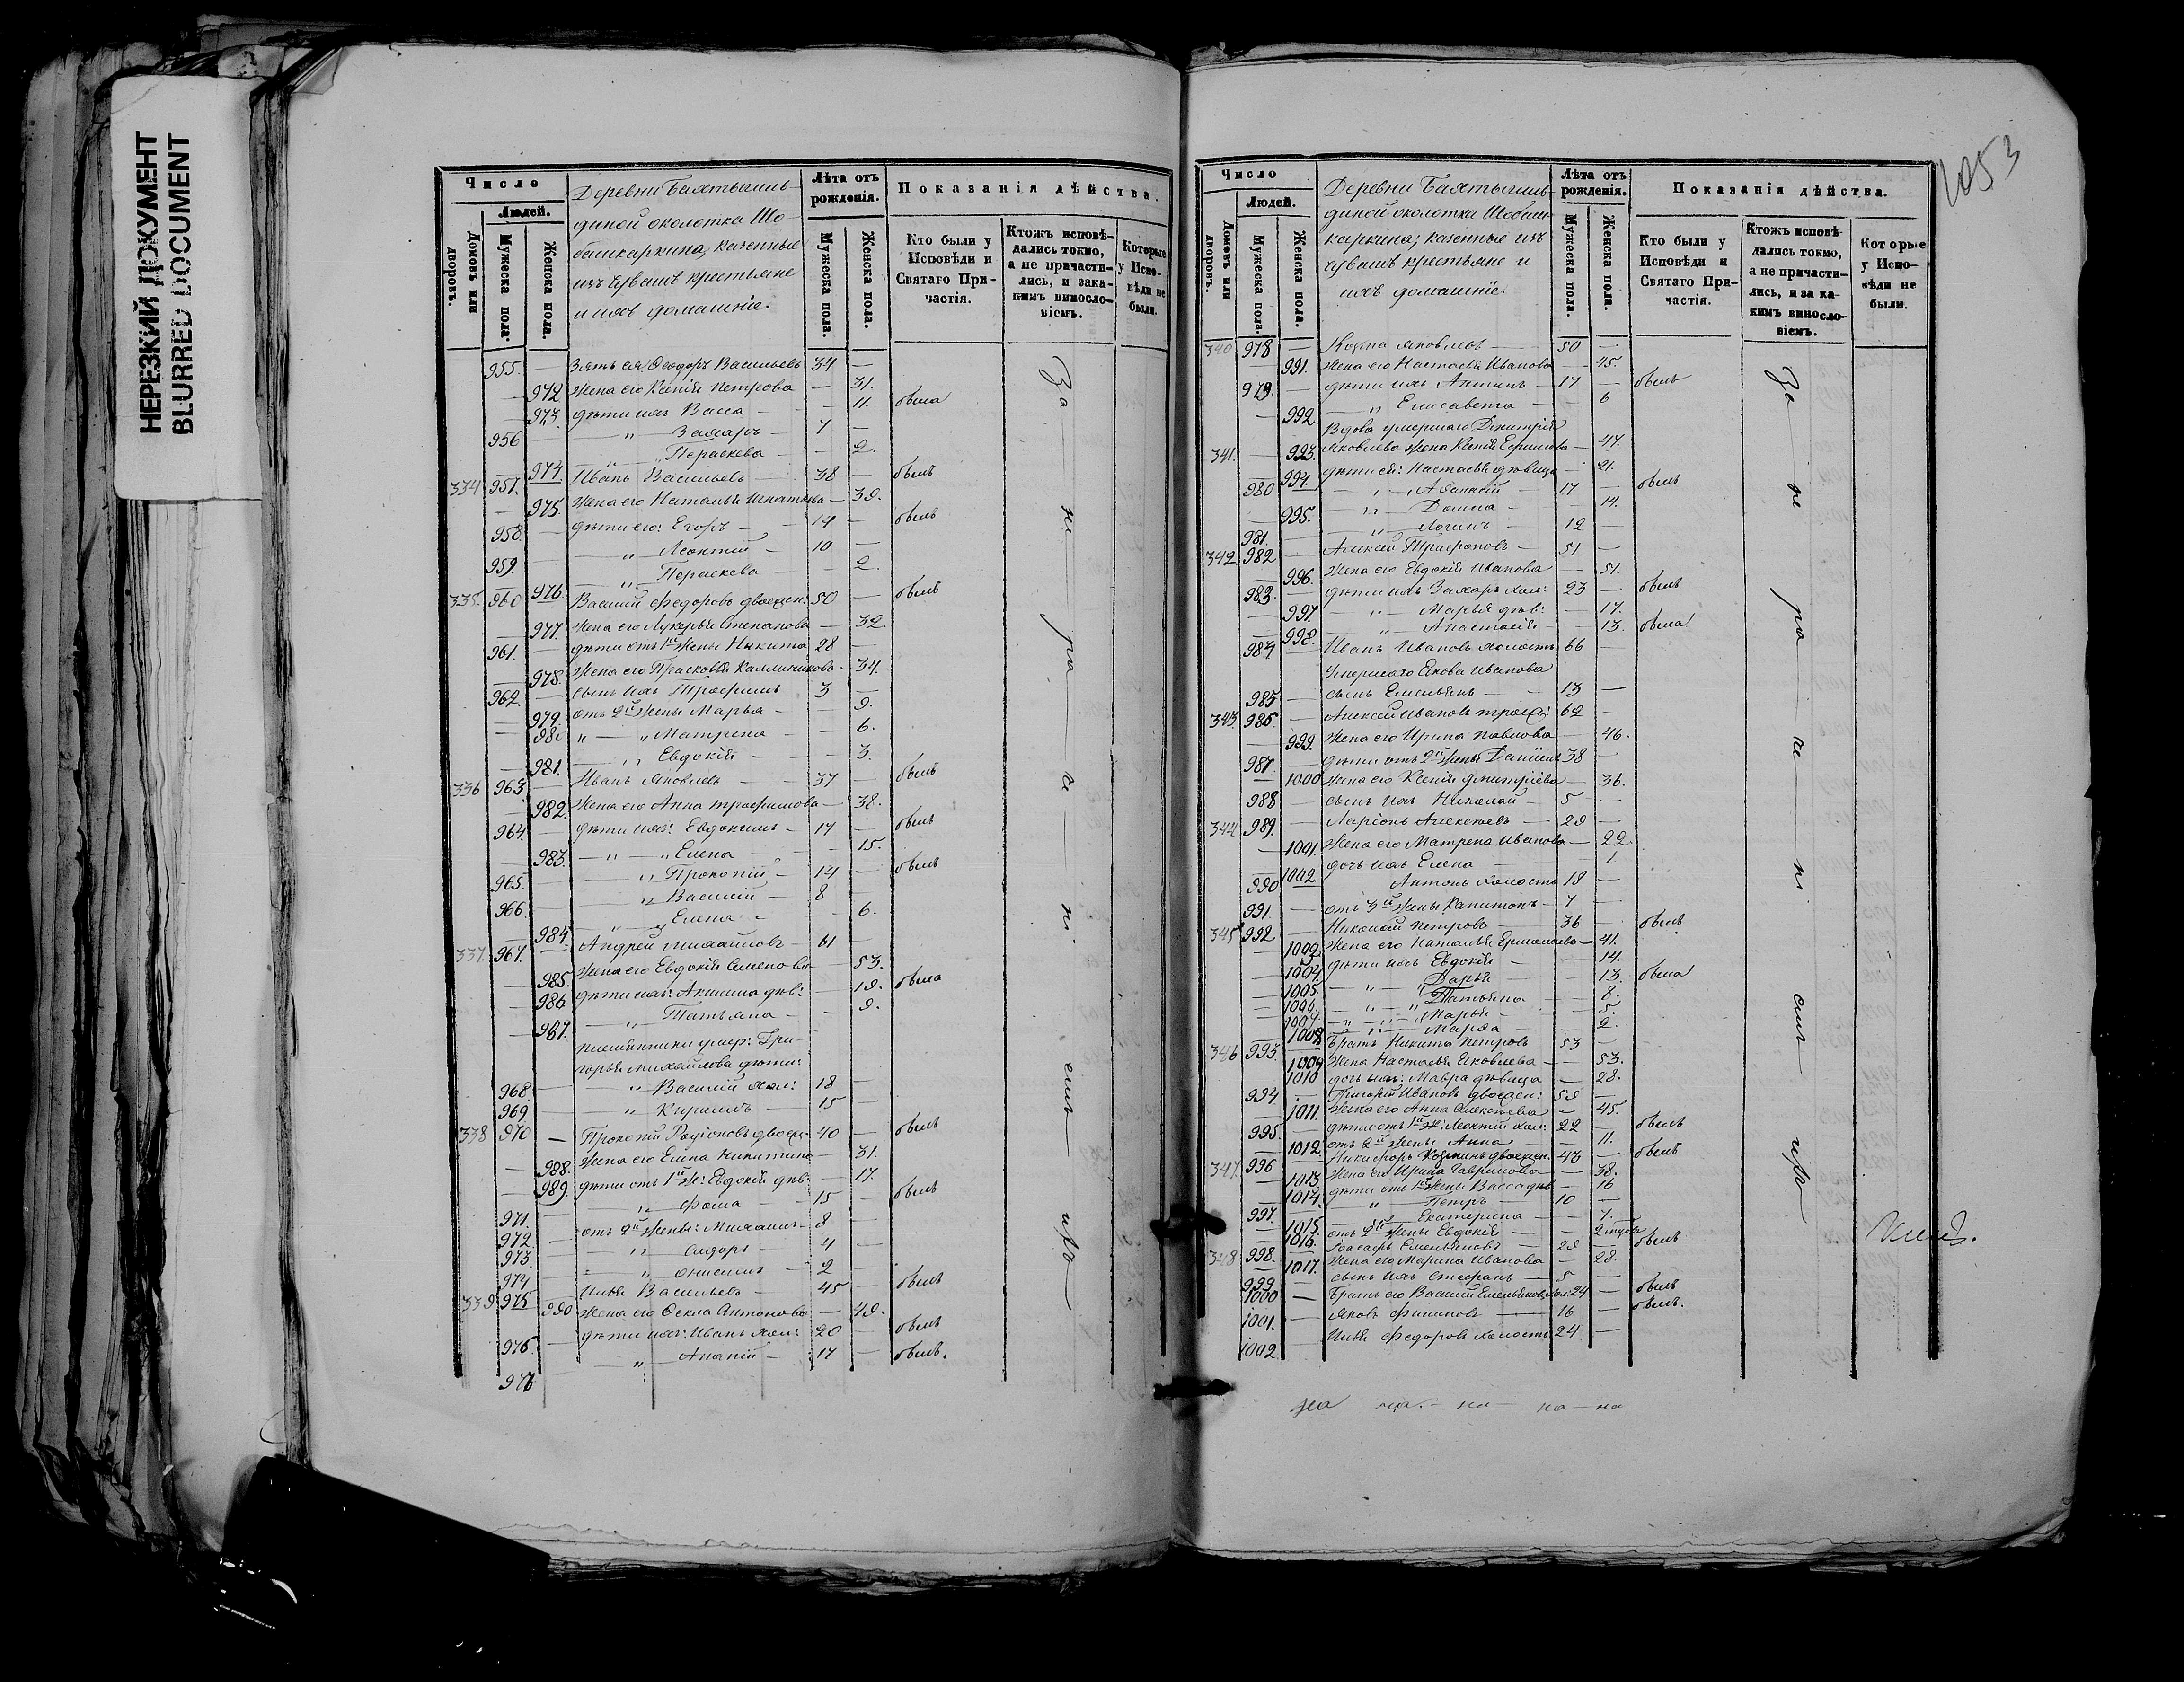 НЕРЕЗКИЙ ДОКУМЕНТ
BLURRED DOCUMENT
Число
Людей.
Домовъ или дворовъ.
Мужеска пола.
Женска пола.
Деревни Бахтыгиль-
диной околотка Шо-
башкаркина, казенные
изъ Чувашъ крестьяне
и ихъ домашніе.
Лѣта отъ рожденія.
Мужеска пола.
Женска пола.
Показанія дѣйства.
Кто были у Исповѣди и Святаго Причастія.
Ктожъ исповѣ-
дались токмо,
а не причасти-
лись, и зака-
кимъ виносло-
віемъ.
Которые
у Испо-
вѣди не
были.
955. — Зять ея Ѳеодоръ Васильевъ 34 —
— 972 Жена его Ксенія Петрова — 31.
— 973. дѣти ихъ Васса — 11. была
956 — „ Захаръ — 7 —
— 974. „ Параскева — 2.
334 957. — Иванъ Васильевъ — 38 — былъ
— 975. Жена его Наталья Игнатьева — 39.
958. — дѣти его: Егоръ — 14 — былъ
959. — „ Леонтій — 10 —
— 976. „ Параскева — 2.
335. 960 — Василій Федоровъ двоежен: 50 — былъ
— 977. Жена его Лукерья Степанова — 32
961. — дѣти отъ 1й Жены Никита 28 —
— 978. Жена его Прасковья Каллиникова — 34.
962. — сынъ ихъ Трофимъ 3 —
— 979. отъ 2й Жены Марья — 9.
— 980. „ — „ Матрена — 6.
— 981. — „ Евдокія — 3.
336 963. — Иванъ Яковлевъ — 37 — былъ
— 982. Жена его Анна Трофимова — 38.
964. — дѣти ихъ: Евдокимъ — 17 — былъ
— 983. — „ — „ Елена — 15.
965. — „ Прокопій — 14 — былъ
966. — „ Василій — 8
— 984. „ Елена — 6.
337. 967. — Андрей Михайловъ — 61 —
— 985. Жена его Евдокія Семенова — 53.
— 986. дѣти ихъ: Акилина дѣв: — 19. была
— 987. — „ Татьяна — 9.
племянники умер: Гри-
горья Михайлова дѣти:
968. — „ Василій хол: 18 —
969. — „ Кириллъ — 15 —
338 970 — Прокопій Родіоновъ двоеж. 40 — былъ
— 988. Жена его Елена Никитина — 31.
— 989. дѣти отъ 1й Ж: Евдокія дѣв: — 17.
971. — „ Фома — 15 — былъ
972. — отъ 2й Жены: Михаилъ — 8 —
973. — „ Сидоръ — 4 —
974 — „ Онисимъ — 2 —
339. 975 — Илья Васильевъ — 45 — былъ
990 Жена его Ѳекла Антонова — 49.
976. — дѣти ихъ: Иванъ хол: 20 — былъ
977. — „ Ананій — 17 — былъ.
За не ра че ні емъ
1053
Число
Людей.
Домовъ или дворовъ.
Мужеска пола.
Женска пола.
Деревни Бахтыгиль-
диной околотка Шобаш-
каркина, казенные изъ
Чувашъ крестьяне и
ихъ домашніе.
Лѣта отъ рожденія.
Мужеска пола.
Женска пола.
Показанія дѣйства.
Кто были у Исповѣди и Святаго Причастія.
Ктожъ исповѣ-
дались токмо,
а не причасти-
лись, и за ка-
кимъ виносло-
віемъ.
Которые
у Испо-
вѣди не
были.
340 978 — Козьма Яковлевъ — 50 —
— 991. Жена его Настасья Иванова — 45.
979. — дѣти ихъ Антипъ — 17 — былъ
— 992 „ Елисавета — 6
Вдова умершаго Димитрія
341. — 993. Яковлева Жена Ксенія Ефимова — 47.
— 994. дѣти ея: Настасья дѣвица — 21.
980 — „ Афанасій — 17 — былъ
— 995. — „ Домна — 14.
981. — „ Логинъ — 12 —
342. 982 — Алексѣй Трифоновъ — 51 —
— 996. Жена его Евдокія Иванова — 51.
983. — дѣти ихъ Захаръ хол: 23 — былъ
— 997. — „ Марья дѣв: — 17.
— 998. — „ Анастасія — 13. была
984 — Иванъ Ивановъ холостъ 66 —
Умершаго Якова Иванова
985 — сынъ Емельянъ — 13 —
343. 986. — Алексѣй Ивановъ троеж: 62 —
— 999. Жена его Ирина Павлова — 46.
987. — дѣти отъ 2й Жены Даніилъ 38 —
— 1000 Жена его Ксенія Дмитріева — 36.
988 — сынъ ихъ Николай — 5 —
344 989. — Ларіонъ Алексѣевъ — 29 —
— 1001. Жена его Матрена Иванова — 22
— 1002. дочь ихъ Елена — 1
990 — Антонъ холостъ 19 —
991. — отъ 3й Жены Капитонъ — 7 —
345 992 — Николай Петровъ — 36 — былъ
— 1003. Жена его Наталья Ермолаева — 41.
— 1004. дѣти ихъ Евдокія — 14.
— 1005. — „ Дарья 13. была
— 1006. — „ Татьяна — 8.
— 1007. — „ Марья — 5.
— 1008 „ Марѳа — 2.
346 993. — Братъ Никита Петровъ 53 —
— 1009 Жена Настасья Яковлева — 53.
— 1010 дочь ихъ: Мавра дѣвица — 28.
994 — Григорій Ивановъ двоежен: 59 —
— 1011. Жена его Анна Алексѣева — 45.
995. — дѣти отъ 1й Ж: Леонтій хол: 22 — былъ
— 1012. отъ 2й Жены Анна — 11.
347. 996 — Никифоръ Козминъ двоежен. 43 — былъ
— 1013 Жена его Ирина Гаврилова — 38.
— 1014. дѣти отъ 1й Жены Васса дѣв — 16
997. — „ Петръ — 10 —
— 1015. — Екатерина — 7.
— 1016. отъ 2й Жены Евдокія — 2
348 998. — Іоасафъ Емельяновъ — 29 — былъ
— 1017. Жена его Марина Иванова — 28.
999 — сынъ ихъ Стефанъ — 5 —
1000 — Братъ его Василій Емельяновъ хол: 24 — былъ
1001. — Яковъ Филиповъ — 16 — былъ.
1002 Илья Федоровъ холостъ 24 —
За не ра че ні емъ